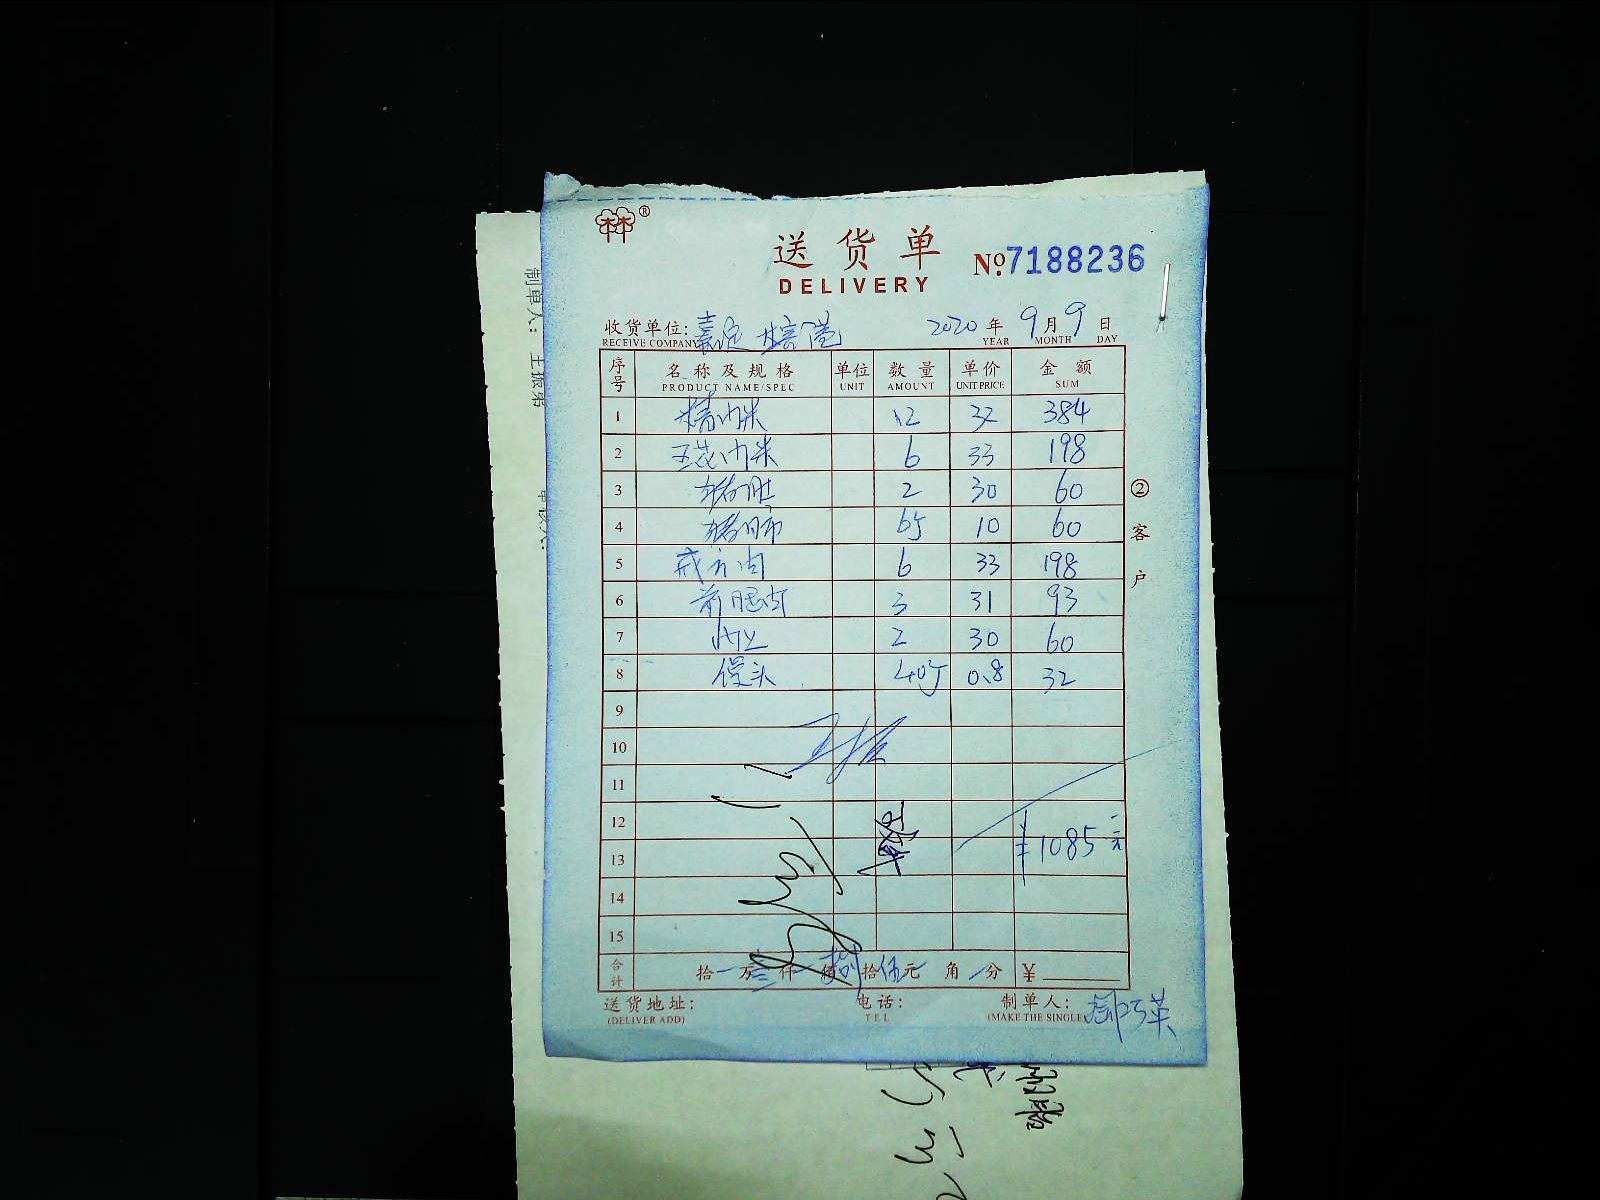 ®
送货单
DELIVERY
No.7188236
收货单位: 嘉定 2020年9月9日
RECEIVE COMPANY YEAR MONTH DAY
序号 名称及规格 单位 数量 单价 金额
PRODUCT NAME/SPEC UNIT AMOUNT UNIT PRICE SUM
1 12 32 384
2 五花肉米 6 33 198
3 猪肚 2 30 60
4 猪肺 6斤 10 60
5 6 33 198
6 前腿肉 3 31 93
7 2 30 60
8 馒头 40斤 0.8 32
9
10
11
12
13 ¥1085元
14
15
合计 拾 万 仟 佰 拾 伍元 角 分 ¥
送货地址: 电话: 制单人:
(DELIVER ADD) TEL (MAKE THE SINGLE)
②客户
制单人: